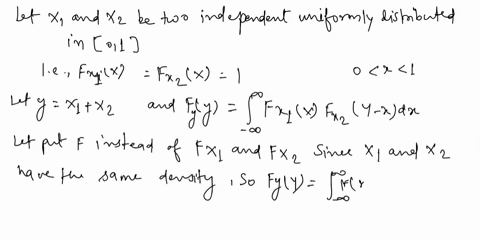 Let X1 and X2 be two independent uniformly distributed
in [0,1]
i.e., Fx1(x) = Fx2(x) = 1 0 < x < 1
Let y = X1 + X2 and Fy(y) = ∫_{-∞}^{∞} Fx1(x) Fx2(y-x) dx
Let put F instead of FX1 and FX2 since X1 and X2
have the same density, so Fy(y) = ∫_{-∞}^{∞} F(